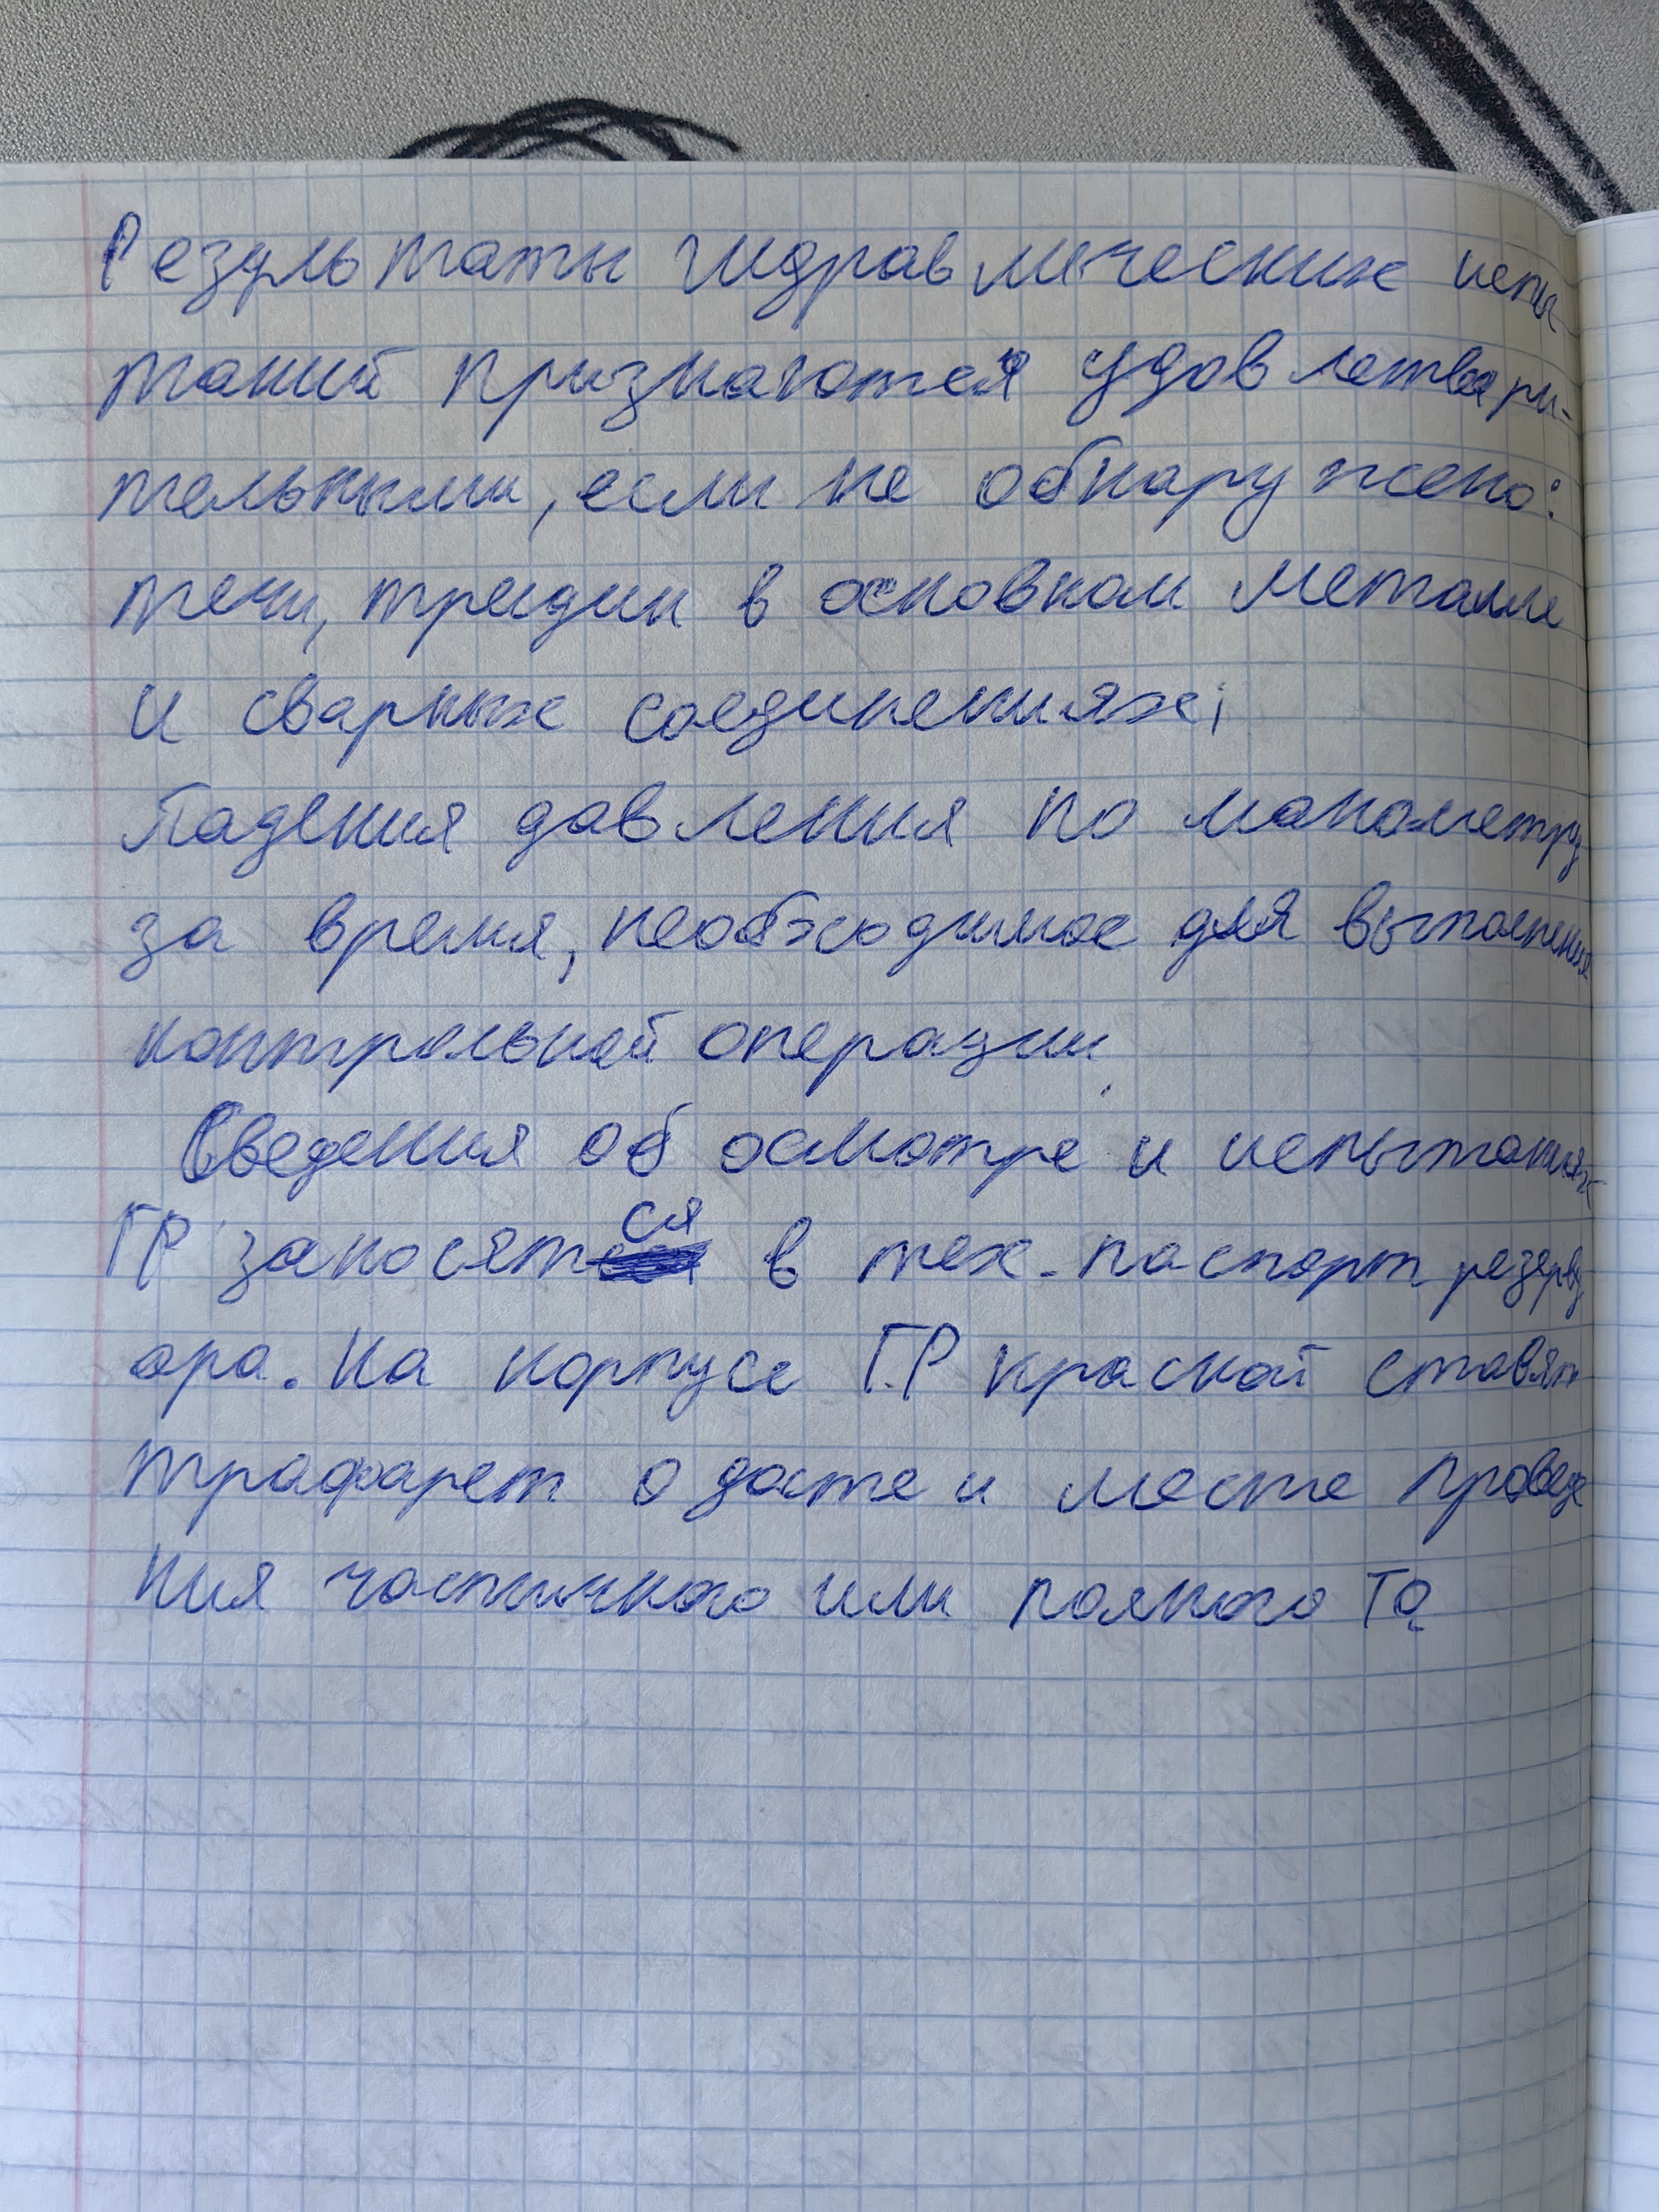 Результаты гидравлических испы-
таний признаются удовлетвори-
тельными, если не обнаружено:
течи, трещин в основном металле
и сварных соединениях;
Падения давления по манометру
за время, необходимое для выполнения
контрольной операции.
Сведения об осмотре и испытаниях
ГР заносятся в тех-паспорт резерву
ара. На корпусе ГР краской ставят
трафарет о дате и месте проведе
ния частичного или полного ТО